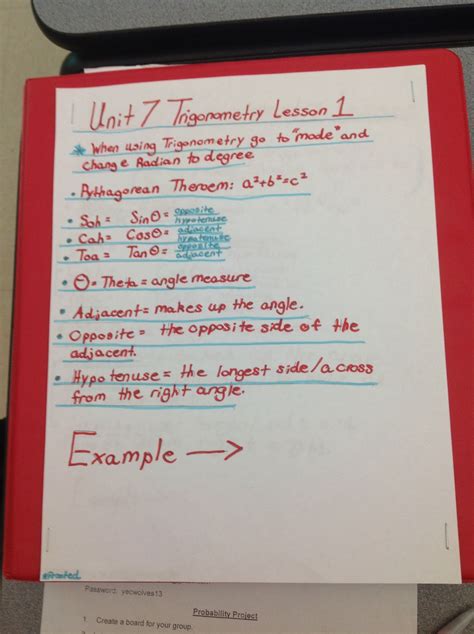 Unit 7 Trigonometry Lesson 1
* When using Trigonometry go to "mode" and
change Radian to degree
• Pythagorean Theroem: a²+b²=c²
• Soh= Sinθ= opposite/hypotenuse
• Cah= Cosθ= adjacent/hypotenuse
• Toa= Tanθ= opposite/adjacent
• θ=Theta=angle measure
• Adjacent= makes up the angle.
• Opposite= the opposite side of the
adjacent.
• Hypotenuse= the longest side/across
from the right angle.
Example →
Password: yecwolves13
Probability Project
1. Create a board for your group.